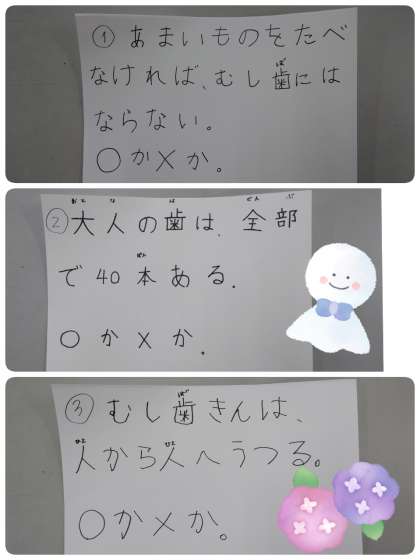 ① あまいものをたべ
なければ、むし歯には
ならない。
○か×か。
② 大人の歯は、全部
で40本ある。
○か×か。
③ むし歯きんは、
人から人へうつる。
○か×か。